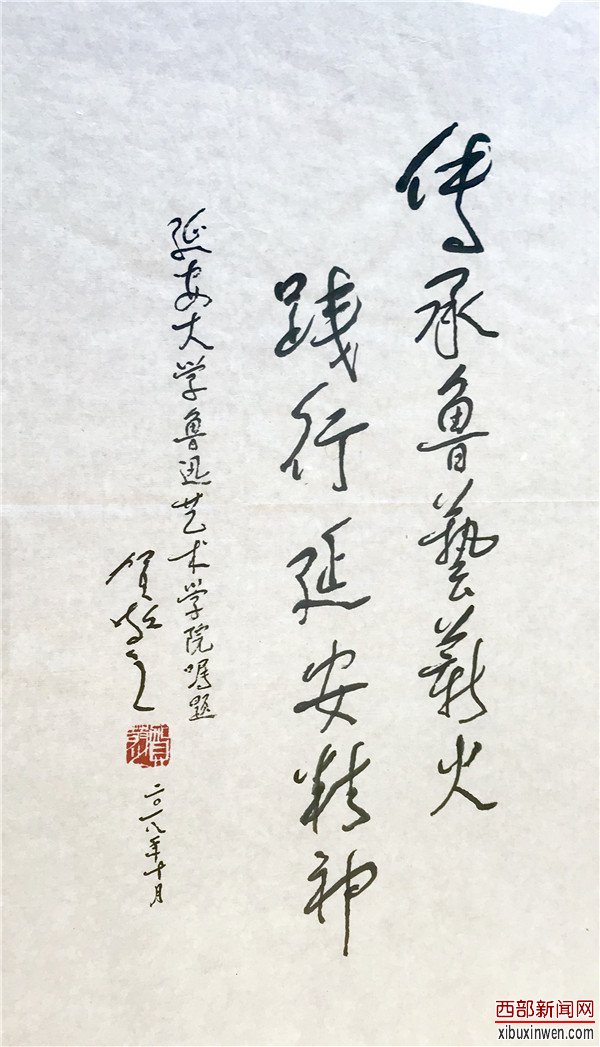 傳承魯藝薪火
践行延安精神
延安大学鲁迅艺术学院嘱题
贺敬之
二〇一八年十月
西部新闻网
xibuxinwen.com